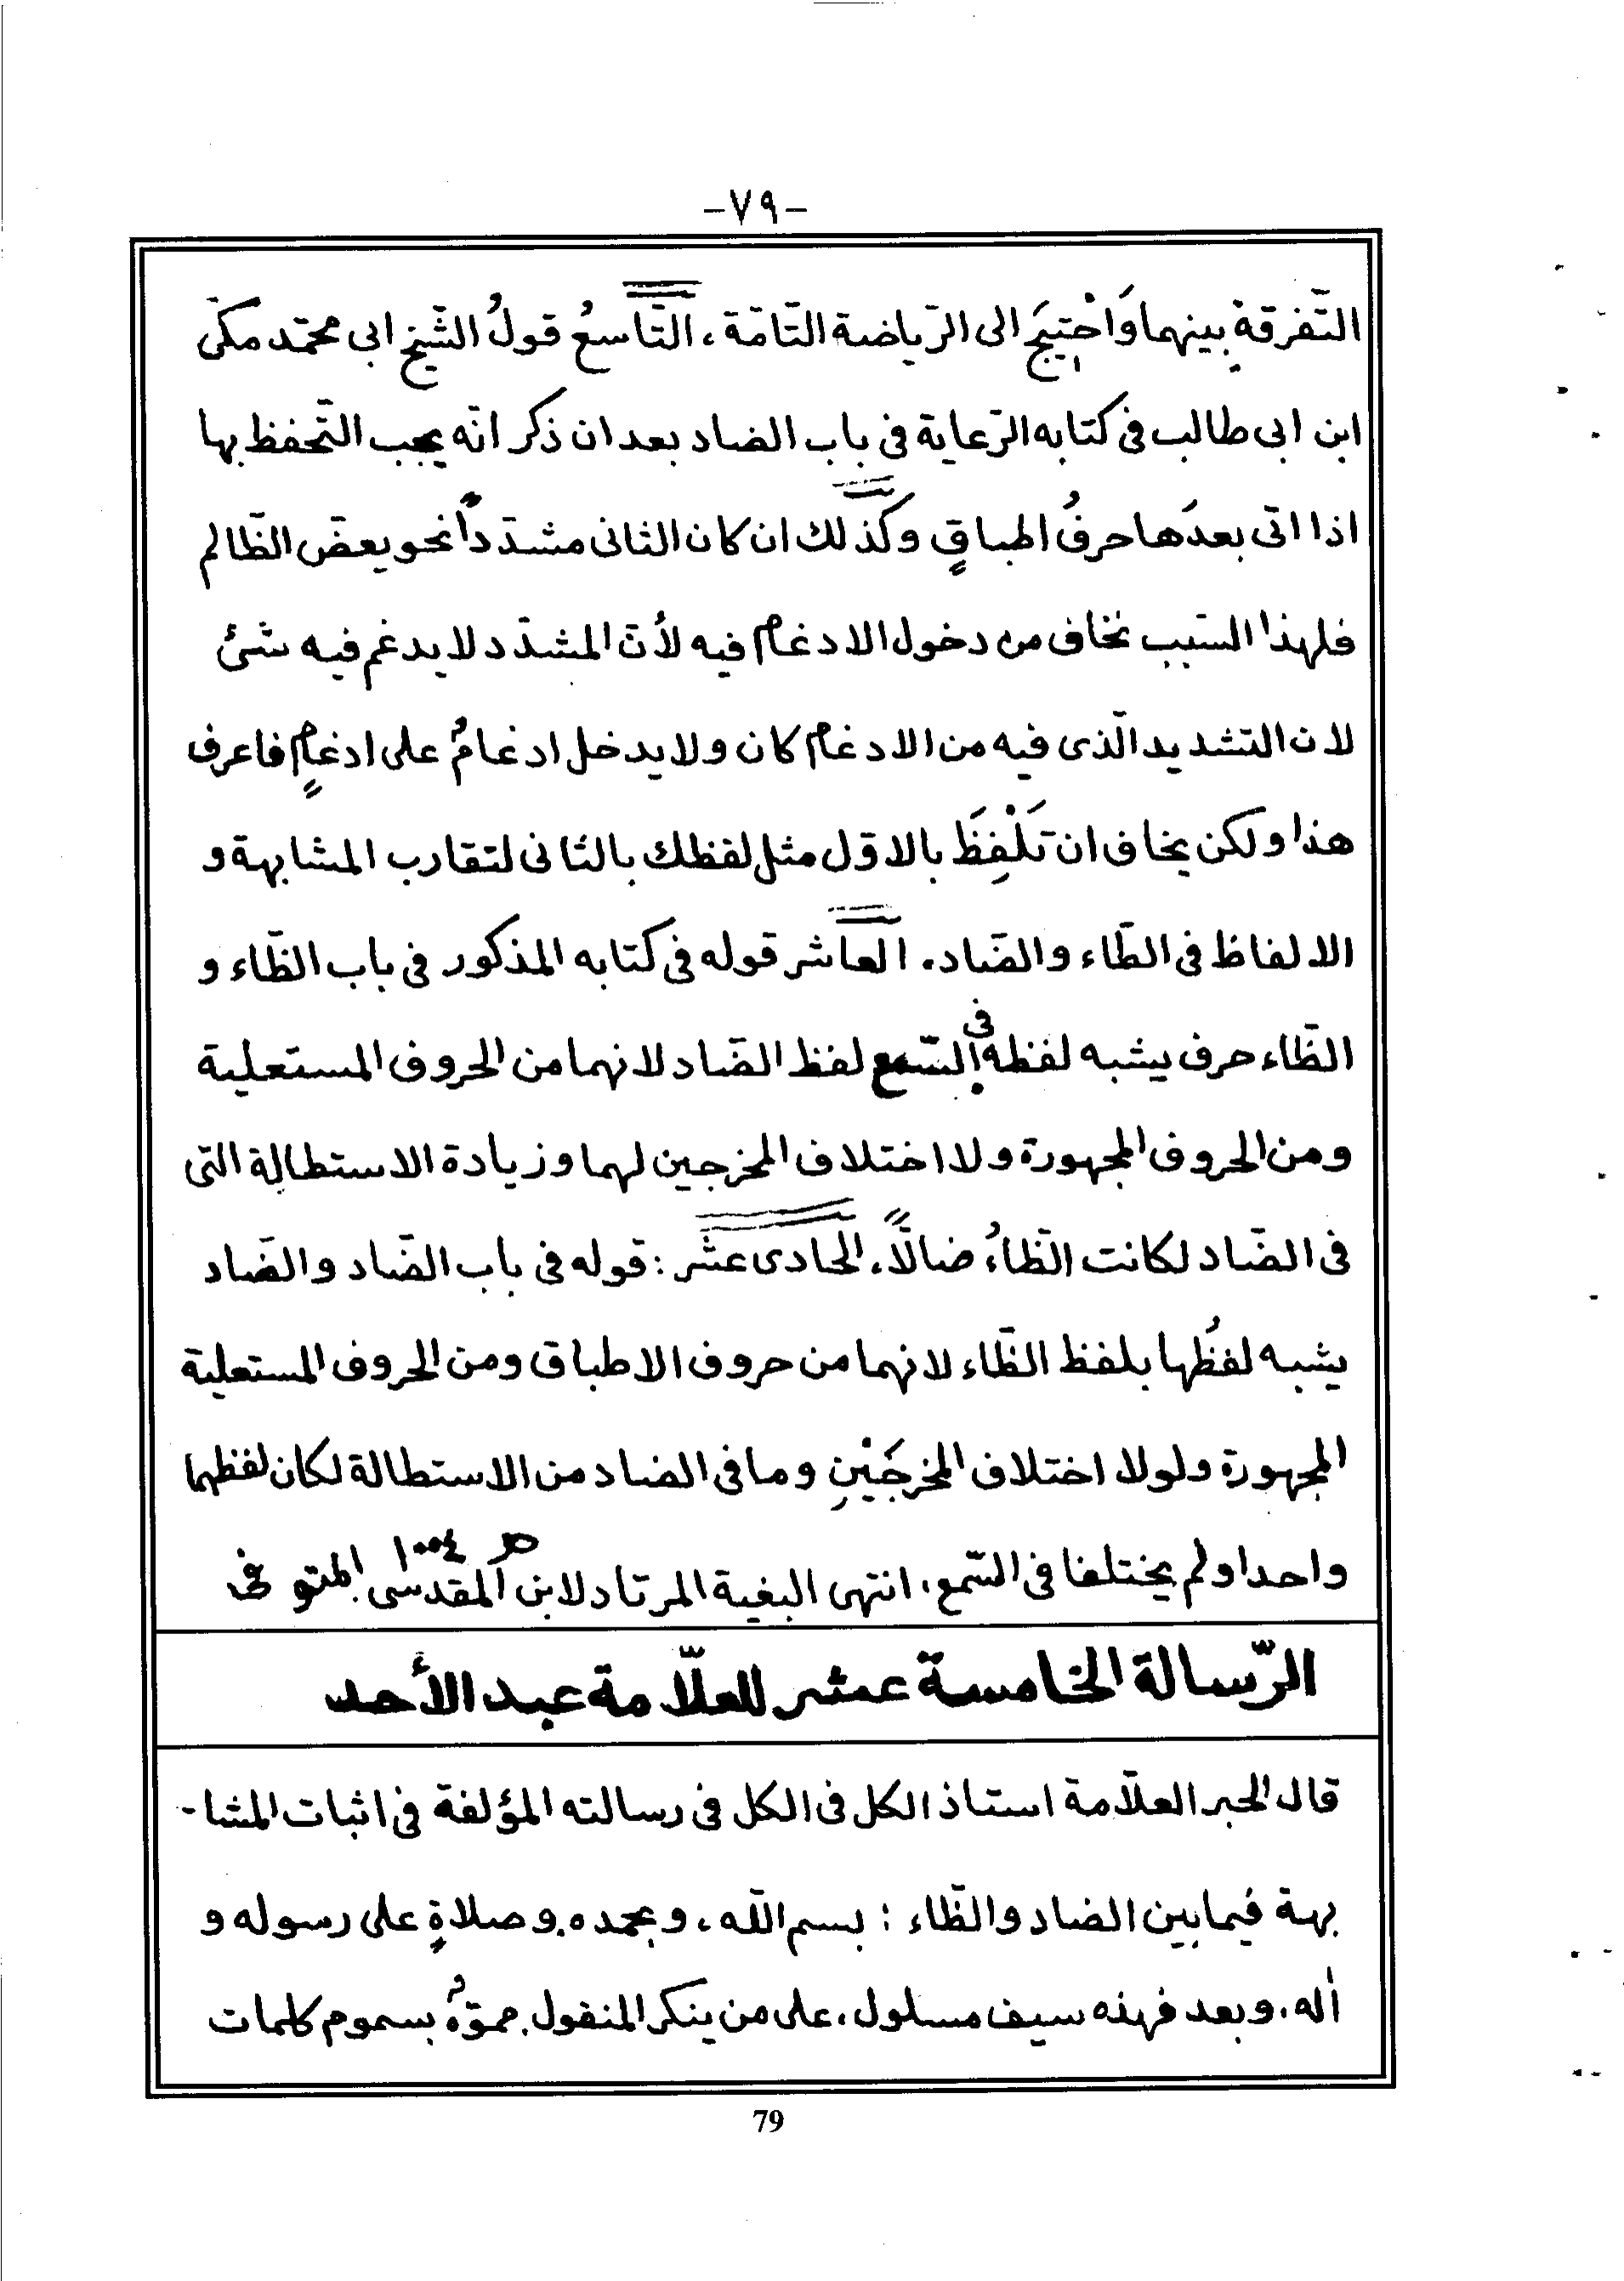 -٧٩-
التّفرقةِ بينهما وَاحْتيجَ الى الرّياضة التّامّة، التّاسعُ قولُ الشّيخ ابى محمّد مكّى
ابن ابى طالب فى كتابه الرّعاية فى باب الضاد بعد ان ذكر انّه يجب التّحفظ بها
اذا اتى بعدَها حرفُ اطباقٍ وكذلك ان كان الثانى مشدّداً نحو يعضّ الظّالم
فلهذا السّبب نخاف من دخول الادغام فيه لأنّ المشدّد لا يدغم فيه شئ
لان التشديد الّذى فيه من الادغام كان ولا يدخل ادغامٌ على ادغامٍ فاعرف
هذا ولكن يخاف ان تَلْفِظَ بالاوّل مثل لفظك بالثانى لتقارب المشابهة و
الالفاظ فى الظّاء والضّاد. العاشر قوله فى كتابه المذكور فى باب الظّاء و
الظّاء حرف يشبه لفظه فى السّمع لفظ الضّاد لانهما من الحروف المستعلية
ومن الحروف المجهورة ولا اختلاف المخرجين لهما وزيادة الاستطالة التى
فى الضّاد لكانت الظّاءُ ضالاًّ. الحادى عشر : قوله فى باب الضّاد والضّاد
يشبه لفظُها بلفظ الظّاء لانهما من حروف الاطباق ومن الحروف المستعلية
المجهورة ولولا اختلاف المخرجَيْنِ وما فى الضاد من الاستطالة لكان لفظهما
واحدا ولم يختلفا فى السّمع، انتهى البغية المرتاد لابن المقدسى المتوفى ١٠٠٤ هـ
الرّسالة الخامسة عشر للعلّامة عبد الأحد
قال الحبر العلّامة استاذ الكل فى الكل فى رسالته المؤلفة فى اثبات المشا-
بهة فيما بين الضاد والظّاء : بسم الله، وبحمده. وصلاةٍ على رسوله و
اٰله، وبعد فهذه سيف مسلول، على من ينكر المنقول. مموّهٌ بسموم كلمات
79